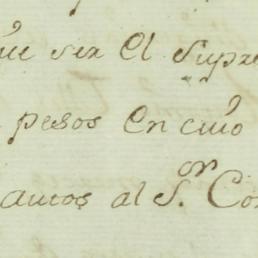 que ser el supre
pesos en cuio
autos al S.^or Con